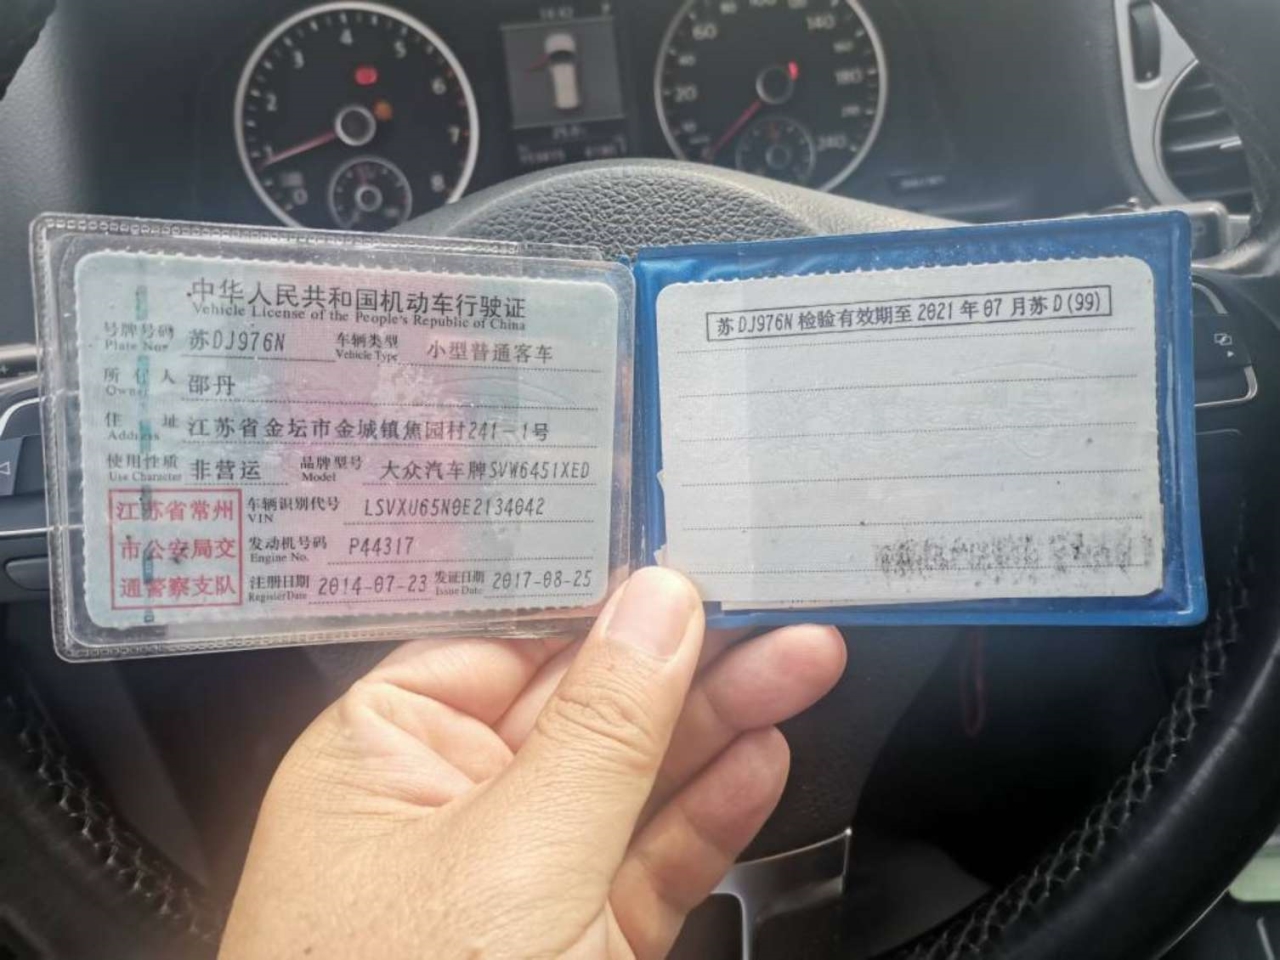 中华人民共和国机动车行驶证
Vehicle License of the People's Republic of China
号牌号码 苏DJ976N 车辆类型 小型普通客车
Plate No. Vehicle Type
所有人 邵丹
Owner
住址 江苏省金坛市金城镇焦园村241-1号
Address
使用性质 非营运 品牌型号 大众汽车牌SVW6451XED
Use Character Model
江苏省常州
市公安局交
通警察支队
车辆识别代号 LSVXU65N0E2134042
VIN
发动机号码 P44317
Engine No.
注册日期 2014-07-23 发证日期 2017-08-25
Register Date Issue Date
苏DJ976N检验有效期至2021年07月苏D(99)
1 2 3 4 5 6 7 8
20 60 80 140 180 240